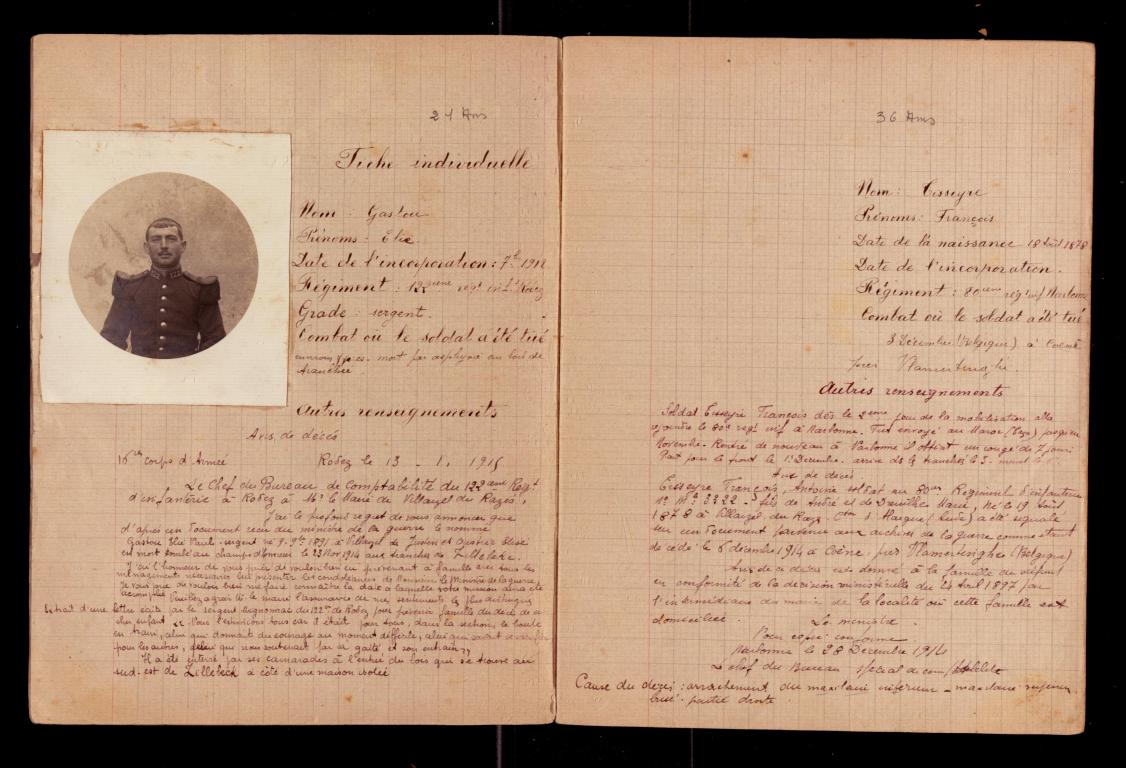 24 Ans
Fiche individuelle
Nom : Gastou
Prénoms : Elie
Date de l'incorporation : 7bre 1912
Régiment : 122ème regt inf Rodez
Grade : sergent.
Combat où le soldat a été tué
environs Ypres. mort par asphyxie au bord de
tranchée
Autres renseignements
Avis de décès
16ème corps d'Armée Rodez le 13 - 1. 1915
Le Chef du Bureau de Comptabilité du 122ème Regt
d'infanterie à Rodez à Mr le Maire de Villarzel du Razès,
J'ai le profond regret de vous annoncer que
d'après un document reçu du ministère de la guerre le nommé
Gastou Elie Paul - sergent né 9bre 1891 à Villarzel de Justin et
est mort tombé au champ d'honneur le 23 Nov 1914 aux tranches de Zillebeke.
J'ai l'honneur de vous prier de vouloir bien en prévenant la famille avec tous les
ménagements nécessaires lui présenter les condoléances de Monsieur le Ministre de la guerre.
Je vous prie de vouloir bien me faire connaître la date à laquelle votre mission aura été
accomplie Veuillez agréer Mr le maire l'assurance de mes sentiments les plus distingués
Extrait d'une lettre écrite par le sergent du 122e de Rodez pour prévenir famille du décès de ce
cher enfant "Nous l'estimions tous car il était pour tous, dans la section, le boute
en train, celui qui donnait du courage au moment difficile, celui qui
pour les autres, celui qui nous soutenait par sa gaité et son entrain"
Il a été enterré par ses camarades à l'entrée du bois qui se trouve au
sud-est de Zillebeck à côté d'une maison isolée
36 Ans
Nom : Tisseyre
Prénoms : François
Date de la naissance 18 Août 1878
Date de l'incorporation.
Régiment : 80ème reg inf Narbonne
Combat où le soldat a été tué
8 Décembre (Belgique) à
près Vlamertinghe.
Autres renseignements
Soldat Tisseyre François dès le 2ème jour de la mobilisation alla
rejoindre le 80e regt inf à Narbonne. Fut envoyé au Maroc (Taza) jusqu'en
Novembre. Rentré de nouveau à Narbonne obtint un congé de 7 jours
Part pour le front le 1er Décembre. arrive ds les tranchées le 5 - meurt le
Avis de décès
Tisseyre François, Antoine soldat au 80ème Régiment d'infanterie
No Mle 3222 - fils de André et de Marie, Né le 19 Août
1878 à Villarzel du Razès Cton d'Alaigne (Aude) a été signalé
sur un document parvenu aux archives de la guerre comme étant
décédé le 6 décembre 1914 à près Vlamertinghe (Belgique)
Avis de ce décès est donné à la famille du défunt
en conformité de la décision ministérielle du 24 Avril 1897 par
l'intermédiaire du maire de la localité où cette famille est
domiciliée. Le ministre.
Pour copie conforme
Narbonne le 28 Décembre 1914
Le chef du Bureau spécial de comptabilité
Cause du décès : arrachement du maxilaire inférieur - maxilaire supérieur
brisé - partie droite